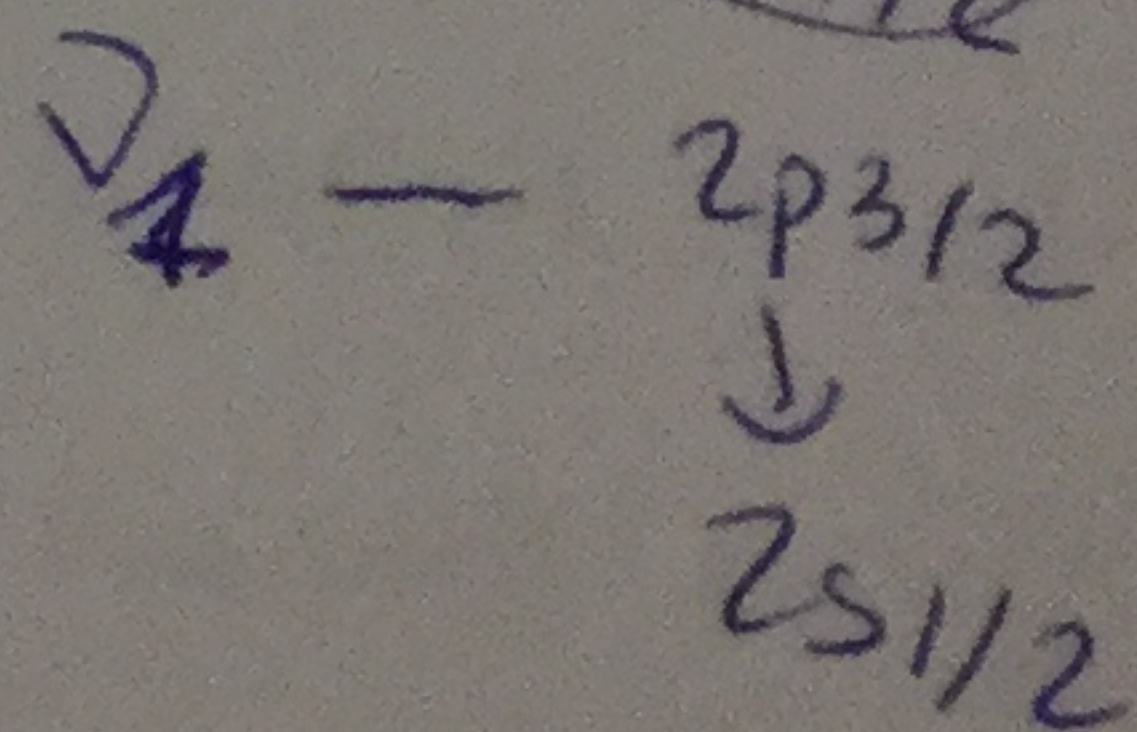 D1 — 2p3/2
↓
2s1/2